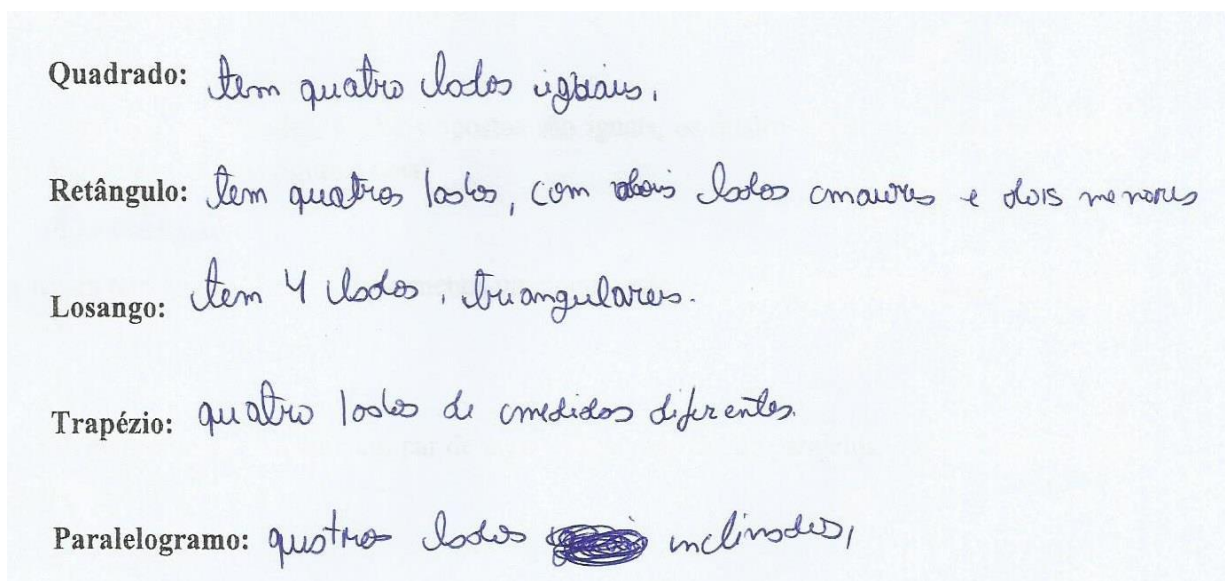 Quadrado: tem quatro lados iguais.
Retângulo: tem quatros lados, com dois lados maiores e dois menores
Losango: tem 4 lados, triangulares.
Trapézio: quatro lados de medidas diferentes.
Paralelogramo: quatros lados inclinados,